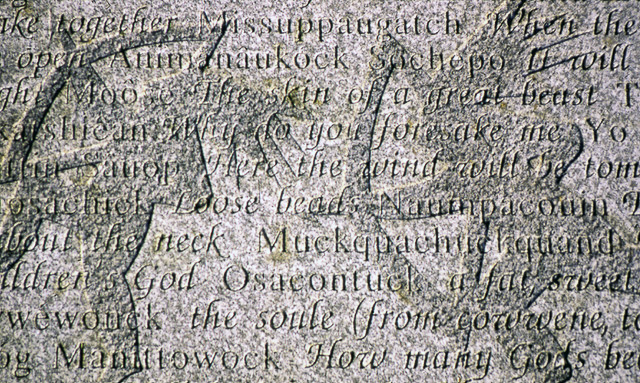 ake together Missuppaugatch When the
open Aumanaukock Sochepo It will
ght Moôse The skin of a great beast T
Why do you foresake me Yo
Sauop Here the wind will be tom
Loose beads Naumpacouin
bout the neck Muckquachuckquand
ildren's God Osacontuck a fat, sweet
wewonck the soule (from cowwene, t
og Manittowock How many Gods be